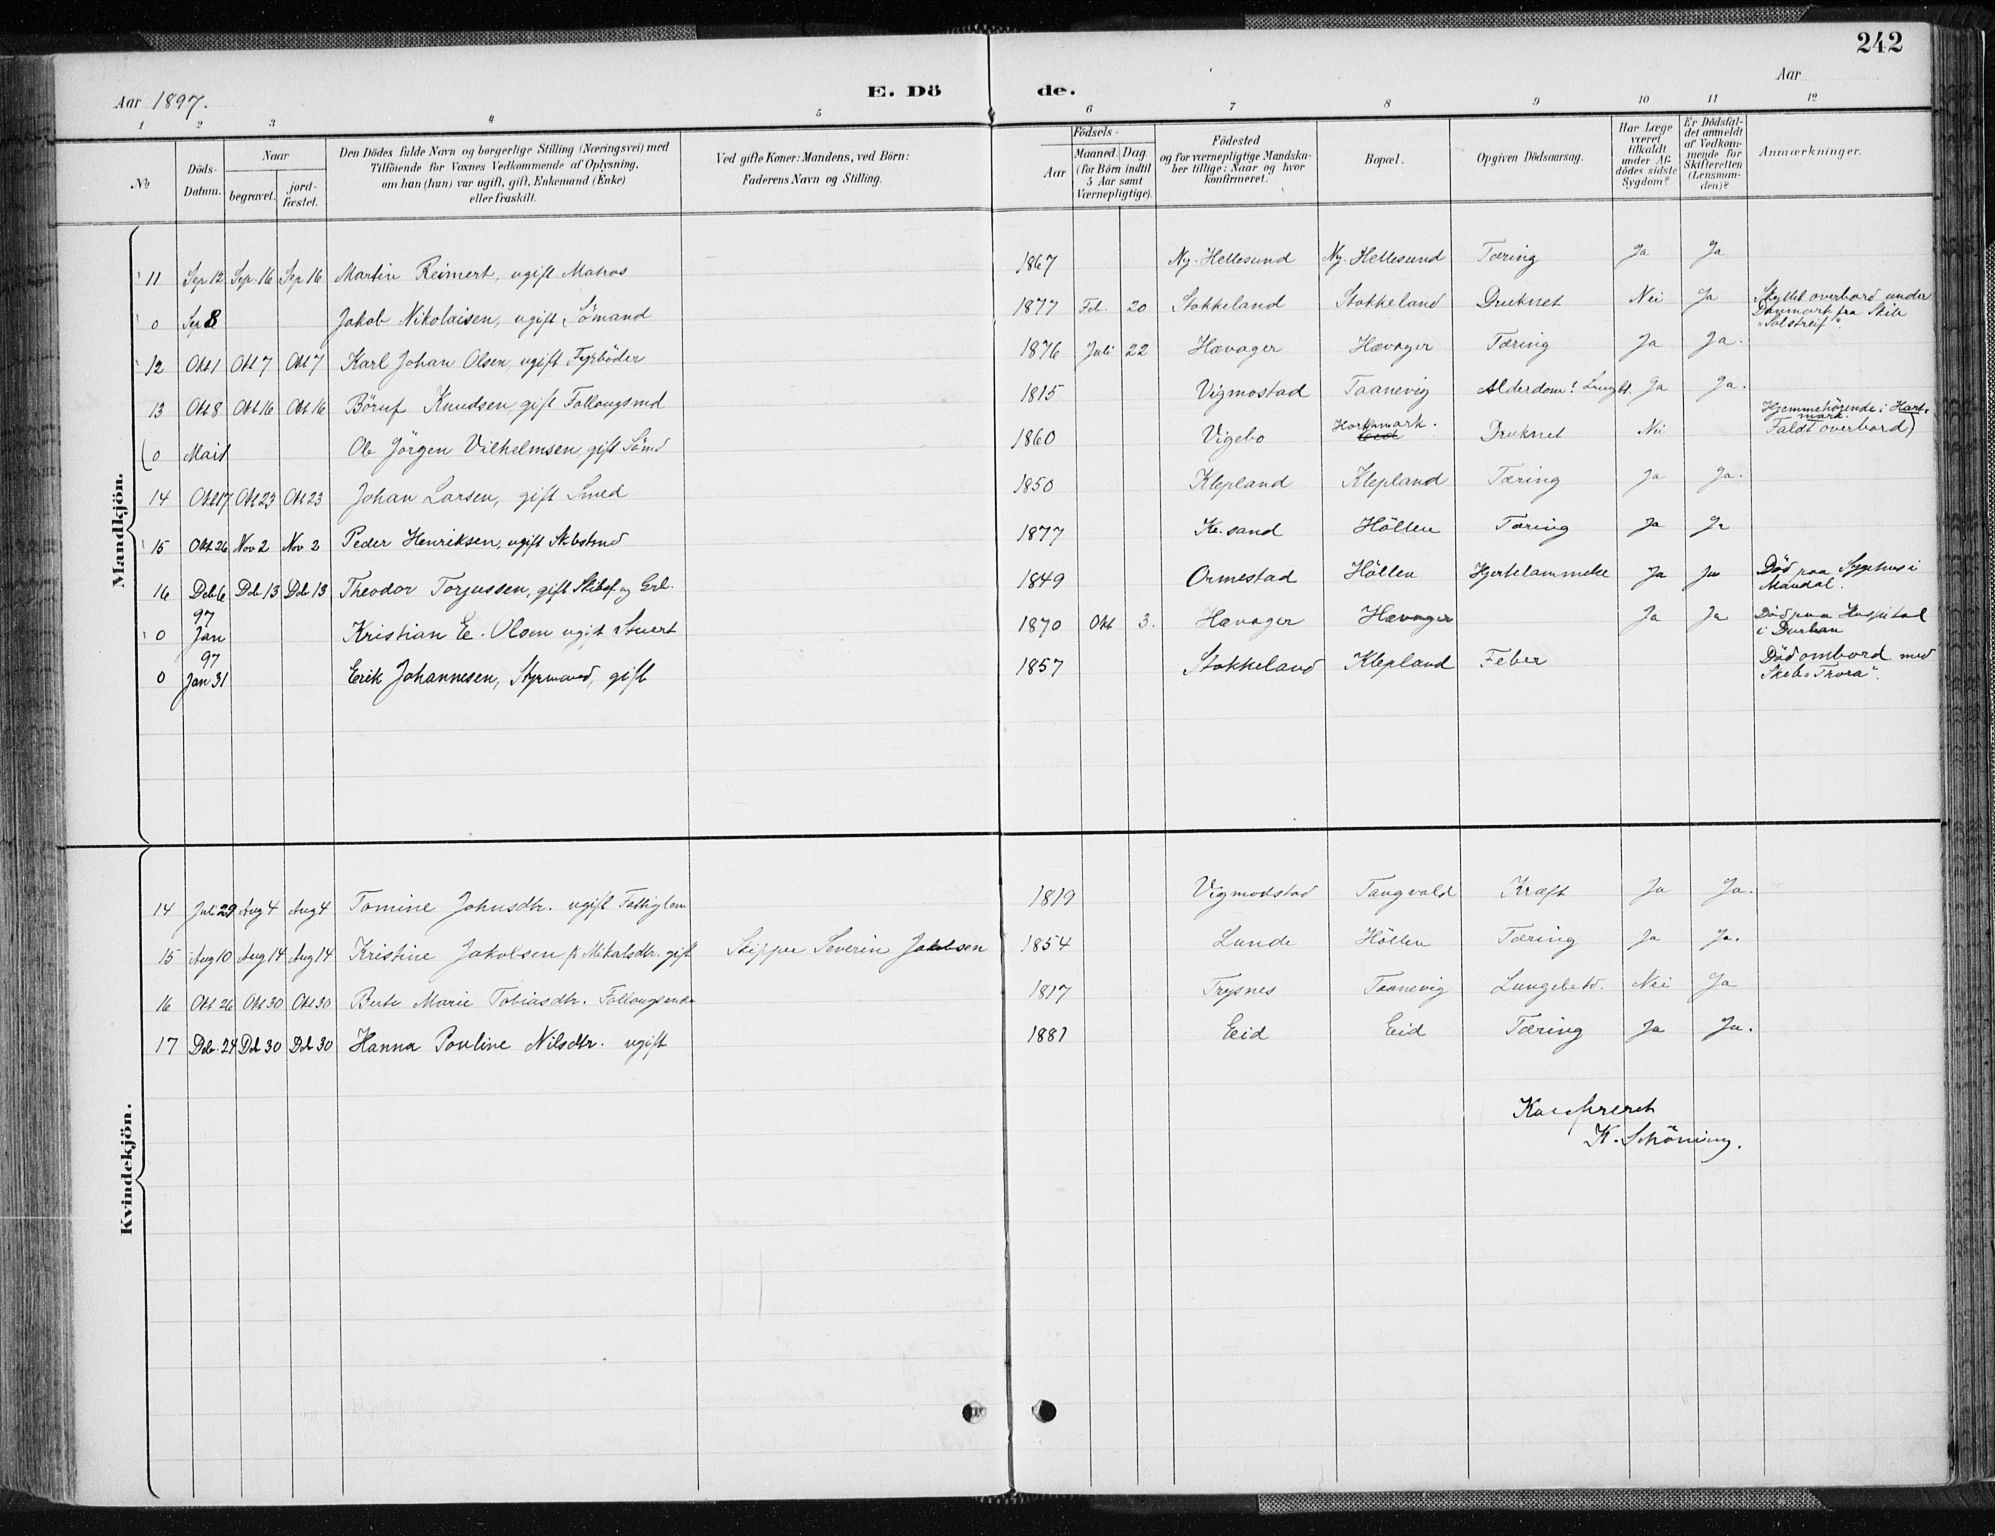 242
Aar 1897. E. Dö de. Aar
1 2 3 4 5 6 7 8 9 10 11 12
№ Döds-Datum. Naar begravet. jord-fæstet. Den Dödes fulde Navn og borgerlige Stilling (Næringsvei) med Tilföiende for Voxnes Vedkommende af Oplysning, om han (hun) var ugift, gift, Enkemand (Enke) eller fraskilt. Ved gifte Koner: Mandens, ved Börn: Faderens Navn og Stilling. Födsels- Aar Maaned. Dag. (for Börn indtil 5 Aar samt Værnepligtige). Födested og for værnepligtige Mandska-ber tillige: Naar og hvor konfirmeret. Bopæl. Opgiven Dödsaarsag. Har Læge været tilkaldt under Af-dödes sidste Sygdom? Er Dödsfal-det anmeldt af Vedkom-mende for Skifteretten (Lensman-den)? Anmærkninger.
Mandkjön.
11 Sep 12 Sep. 16 Sep 16 Martin Reimert, ugift Matros 1867 Ny-Hellesund Ny-Hellesund Tæring Ja Ja
0 Sep 8 Jakob Nikolaisen, ugift Sömand 1877 Feb. 20 Stokkeland Stokkeland Druknet Nei Ja Skyllet overbord under Danmark fra Skib "Solstreif".
12 Okt 1 Okt 7 Okt 7 Karl Johan Olsen, ugift Fyrböder 1876 Juli 22 Hævager Hævager Tæring Ja Ja.
13 Okt 8 Okt 16 Okt 16 Böruf Knudsen, gift Fattiglem 1815 Vigmostad Taanevig Alderdom! Ja Ja.
(0 Mai 1 Ole Jörgen Vilhelmsen, gift Sömd 1860 Vigebo Hartmark. Druknet Nei Hjemmehörende i Hart-mark. Faldt overbord)
14 Okt 17 Okt 23 Okt 23 Johan Larsen, gift Smed 1850 Klepland Klepland Tæring Ja Ja.
15 Okt 26 Nov 2 Nov 2 Peder Henriksen, ugift 1877 Kr. sand Höllen Tæring Ja Ja
16 Deb 6 Deb 13 Deb 13 Theodor Torjussen, gift Skibsf. og 1849 Ormestad Höllen Hjertelammelse Ja Ja Död paa Sygehus i Mandal.
0 97 Jan Kristian E. Olsen ugift Stuert 1870 Okt 3. Hævager Hævager Ja Ja Död paa Hospital i Durban
0 97 Jan 31 Erik Johannesen, Styrmand, gift 1857 Stokkeland Klepland Feber Död ombord med Skib "Thora".
Kvindekjön.
14 Juli 29 Aug 4 Aug 4 Tomine Johnsdtr. ugift Fattiglem 1819 Vigmodstad Tangvald Kræft Ja Ja.
15 Aug 10 Aug 14 Aug 14 Kristine Jakobsen f. Mikalsdtr. gift Skipper Severin Jakobsen 1854 Lunde Höllen Tæring Ja Ja.
16 Okt 26 Okt 30 Okt 30 Marie Tobiasdtr. 1817 Trysnes Taanevig Lungebetd. Nei Ja
17 Deb. 24 Deb 30 Deb 30 Hanna Pouline Nilsdtr. ugift 1881 Eid Eid Tæring Ja Ja.
Konfereret
K. Schöning.